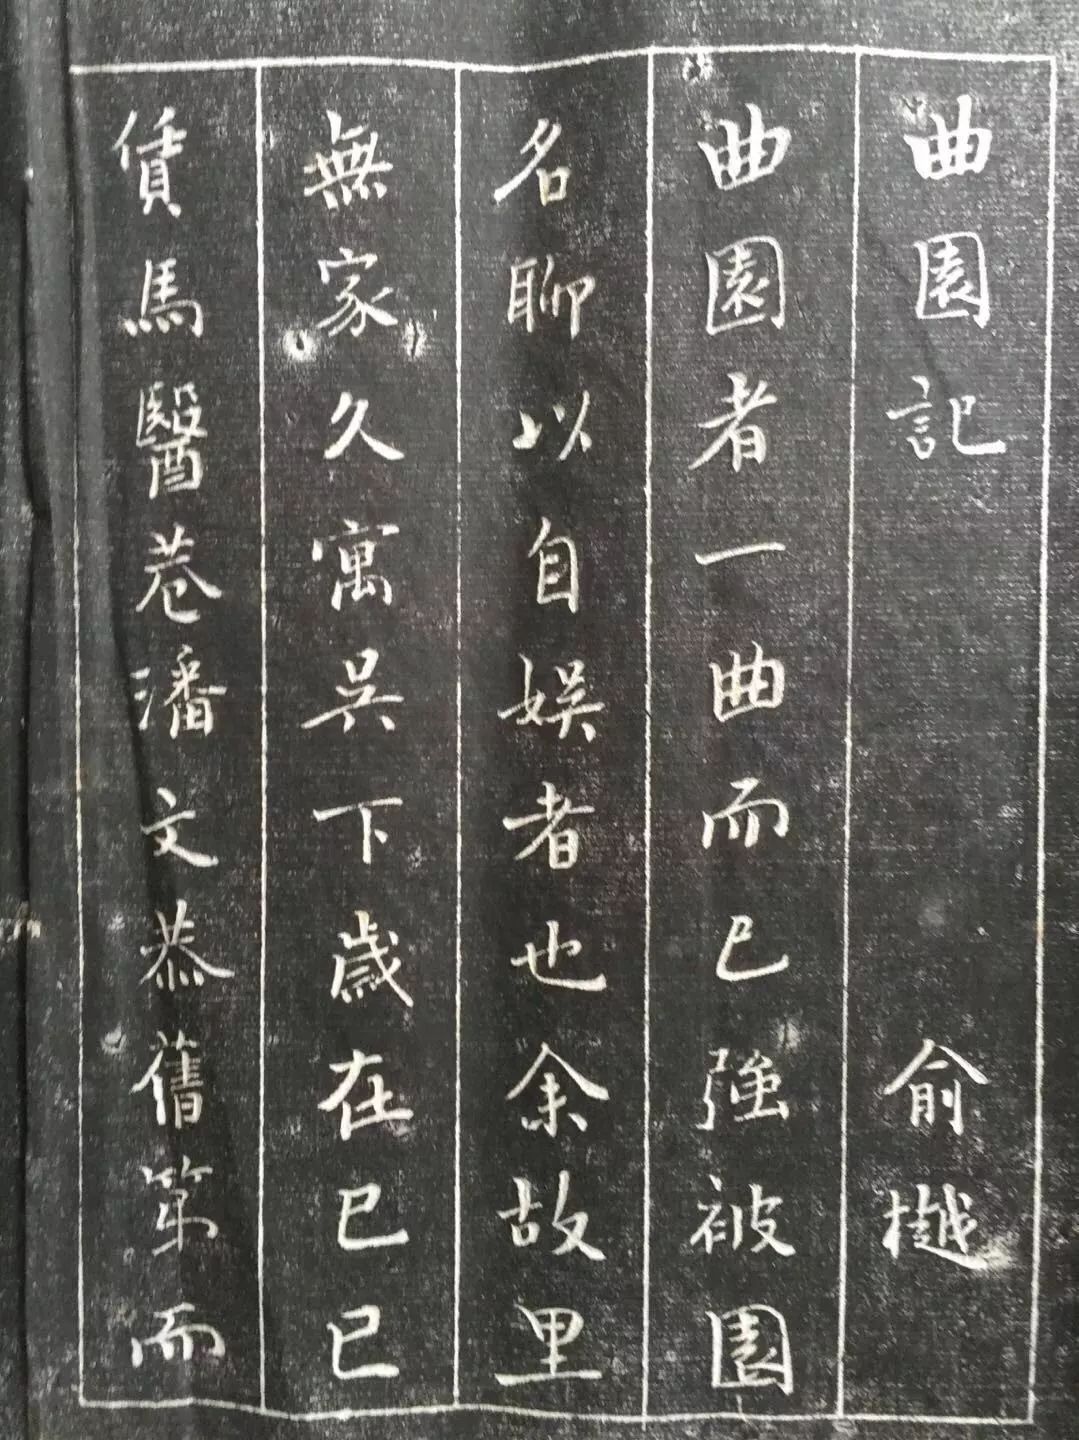 曲園記 俞樾
曲園者一曲而已強被園
名聊以自娛者也余故里
無家久寓吳下歲在己巳
賃馬醫巷潘文恭舊第而